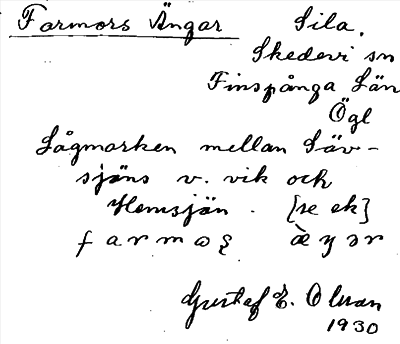 Farmors Ängar Sila,
Skedevi sn
Finspånga Län
Ögl
Lågmarken mellan Säv-
sjöns v. vik och
Hemsjön. [se ek]
farmoṣ æŋər
Gustaf E. Olsson
1930